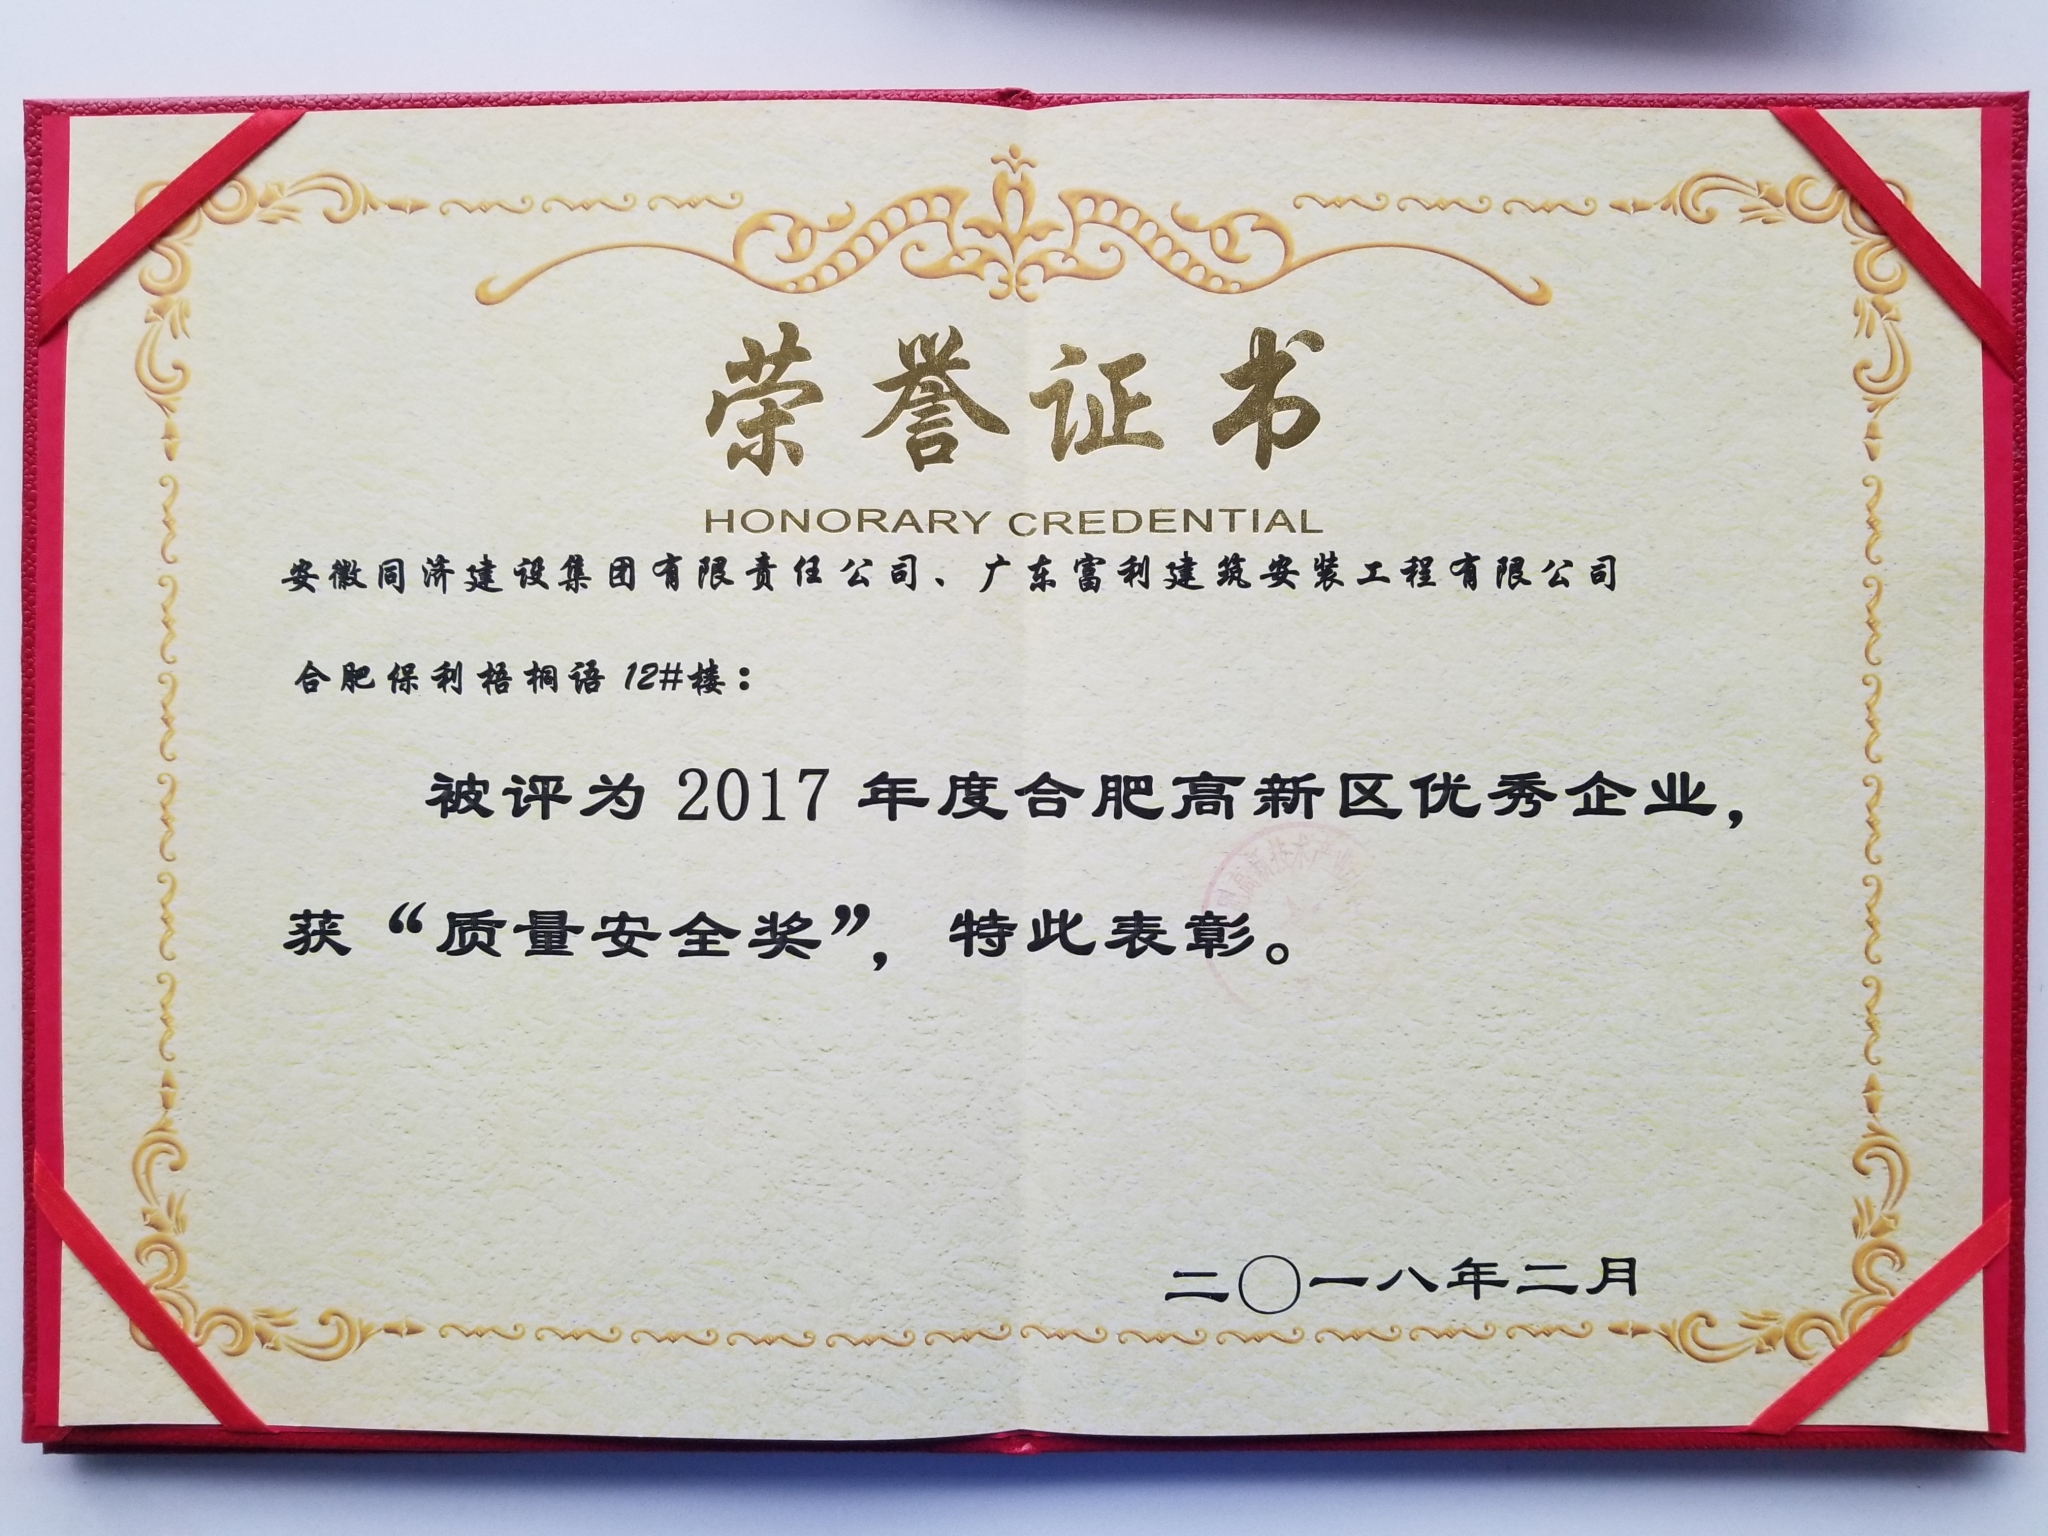 荣誉证书
HONORARY CREDENTIAL
安徽同济建设集团有限责任公司、广东富利建筑安装工程有限公司
合肥保利梧桐语12#楼：
被评为2017年度合肥高新区优秀企业，
获“质量安全奖”，特此表彰。
高新技术产业
二〇一八年二月